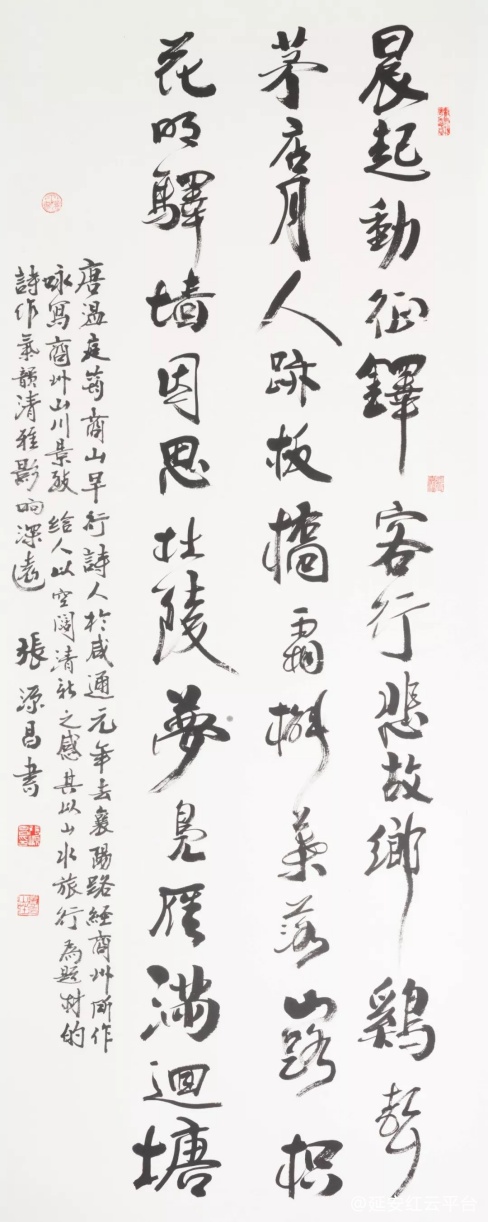 晨起動征鐸客行悲故鄉鷄聲
茅店月人跡板橋霜槲葉落山路枳
花明驛墙因思杜陵夢鳧雁滿迴塘
唐温庭筠商山早行詩人於咸通元年去襄陽路經商州所作
咏寫商州山川景致給人以空闊清新之感其以山水旅行為題材的
詩作氣韻清雅影响深遠 張源昌書
@延安红云平台